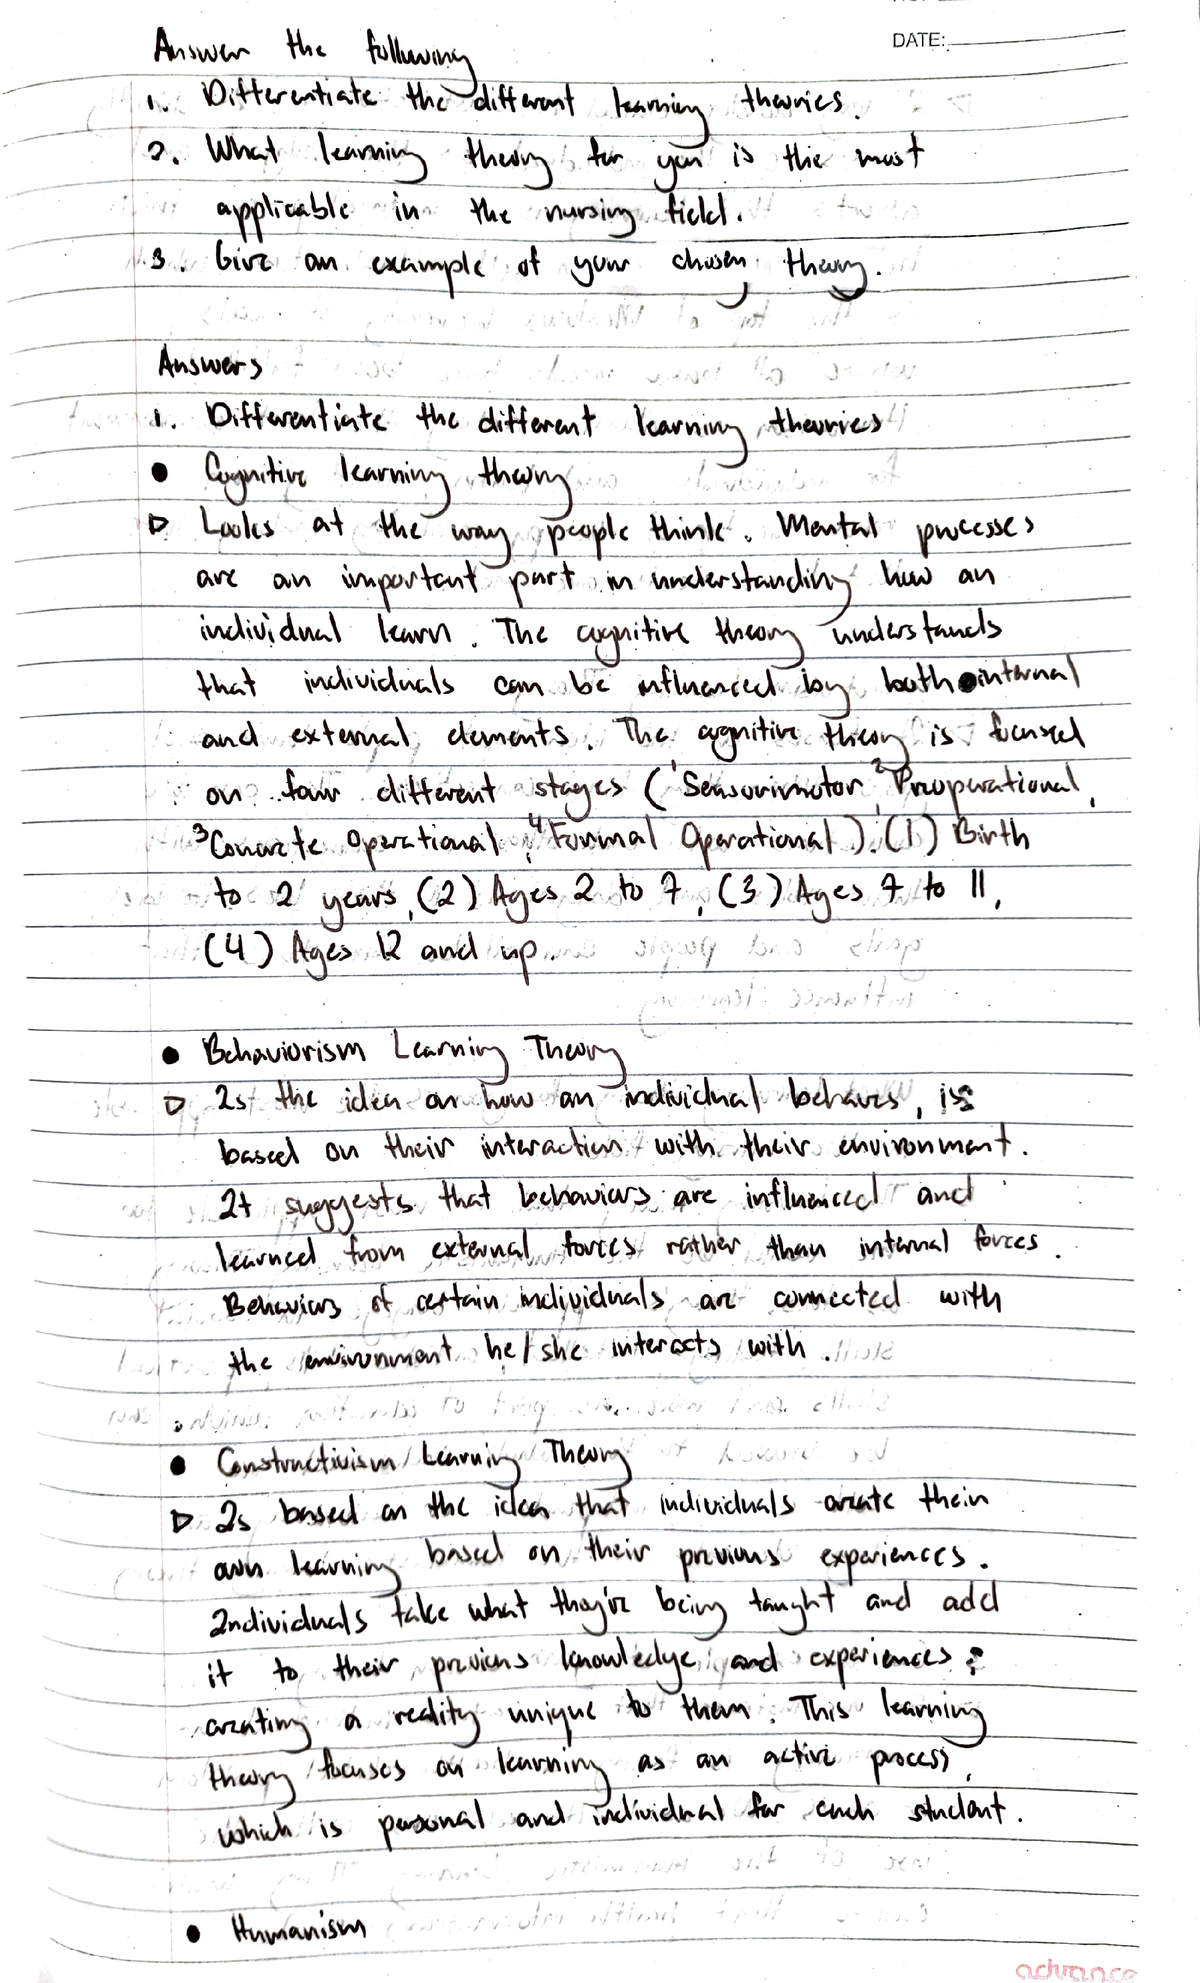 DATE:
Answer the following
1. Differentiate the different learning theories.
2. What learning theory for you is the most
applicable in the nursing field.
3. Give an example of your chosen theory.
Answers
1. Differentiate the different learning theories
• Cognitive learning theory
▷ Looks at the way people think. Mental processes
are an important part in understanding how an
individual learn. The cognitive theory understands
that individuals can be influenced by both internal
and external elements. The cognitive theory is focused
on four different stages (¹Sensorimotor, ²Preoperational,
³Concrete Operational, ⁴Formal Operational). (1) Birth
to 2 years, (2) Ages 2 to 7, (3) Ages 7 to 11,
(4) Ages 12 and up.
• Behaviorism Learning Theory
▷ Is the idea on how an individual behaves, is
based on their interaction with their environment.
It suggests that behaviors are influenced and
learned from external forces rather than internal forces.
Behaviors of certain individuals are connected with
the environment he/she interacts with.
• Constructivism Learning Theory
▷ Is based on the idea that individuals create their
own learning based on their previous experiences.
Individuals take what they're being taught and add
it to their previous knowledge and experiences;
creating a reality unique to them. This learning
theory focuses on learning as an active process,
which is personal and individual for each student.
• Humanism
advance